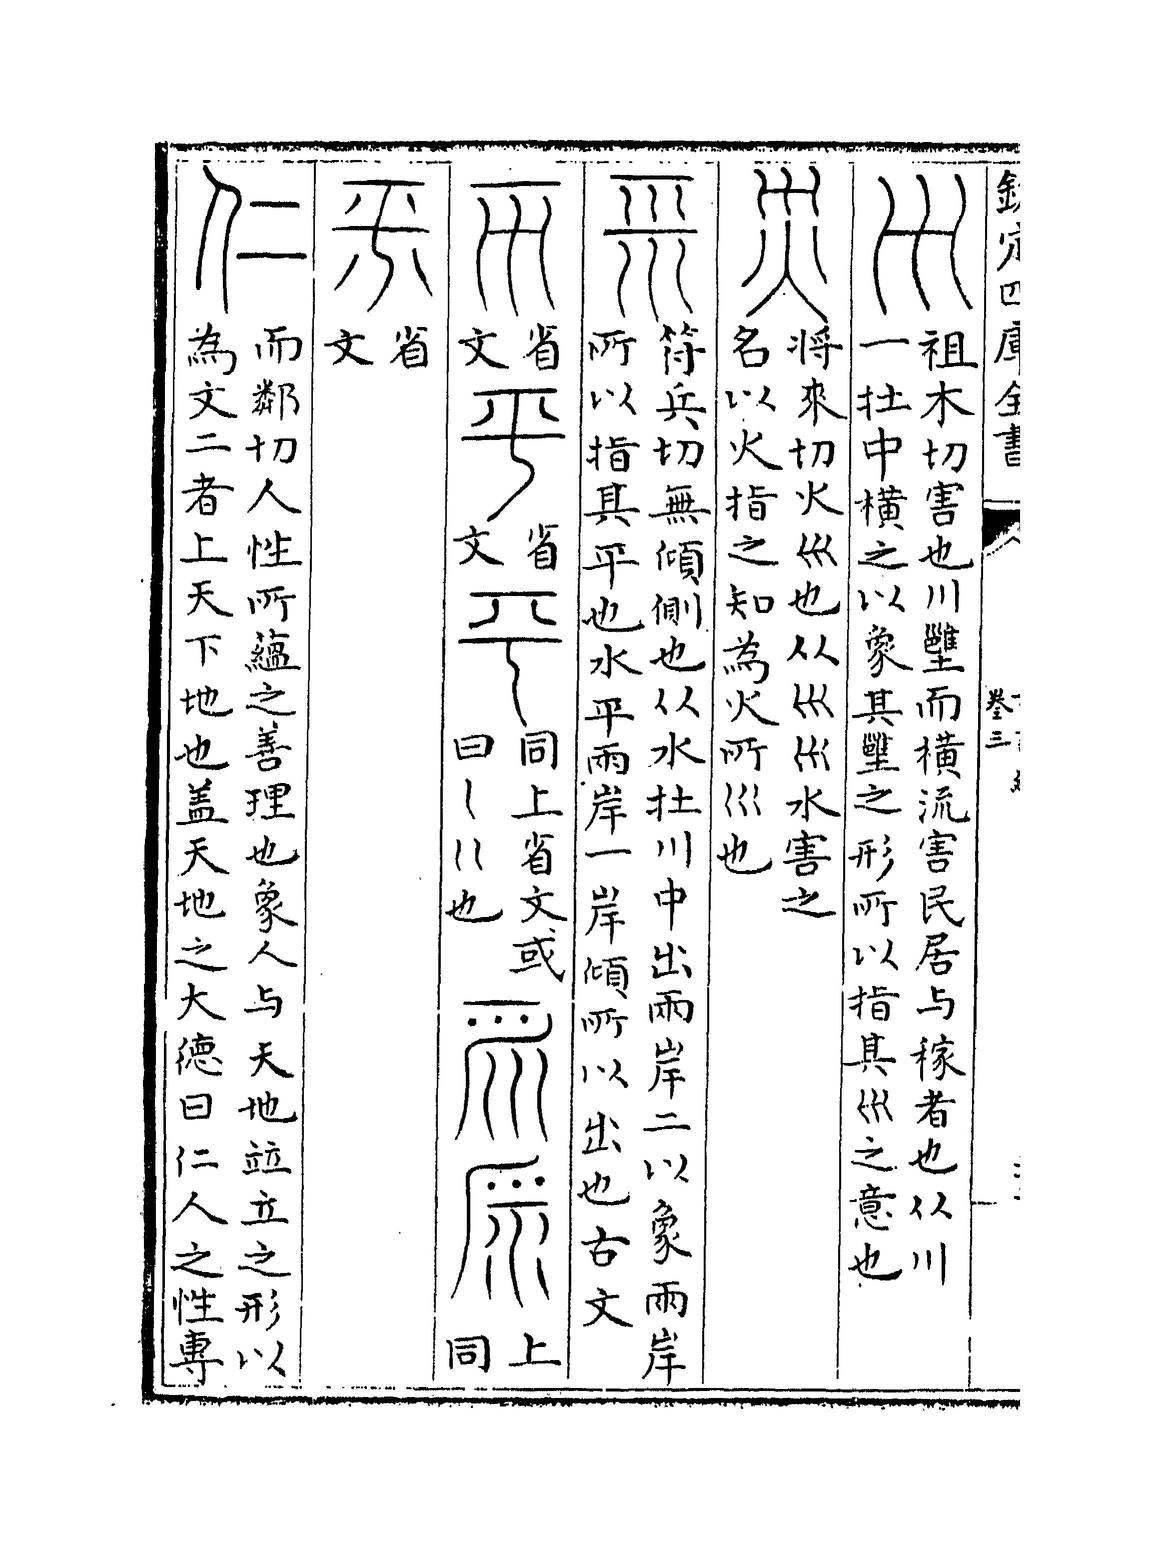 欽定四庫全書
卷三
祖木切害也川壅而橫流害民居与稼者也从川
一壮中橫之以象其壅之形所以指其巛之意也
將來切火巛也从巛巛水害之
名以火指之知為火所巛也
符兵切無傾側也从水壮川中出兩岸二以象兩岸
所以指其平也水平兩岸一岸傾所以出也古文
省
文
省
文
同上省文或
曰乀巜也
上
同
省
文
仁
而鄰切人性所蘊之善理也象人与天地竝立之形以
為文二者上天下地也盖天地之大德曰仁人之性專